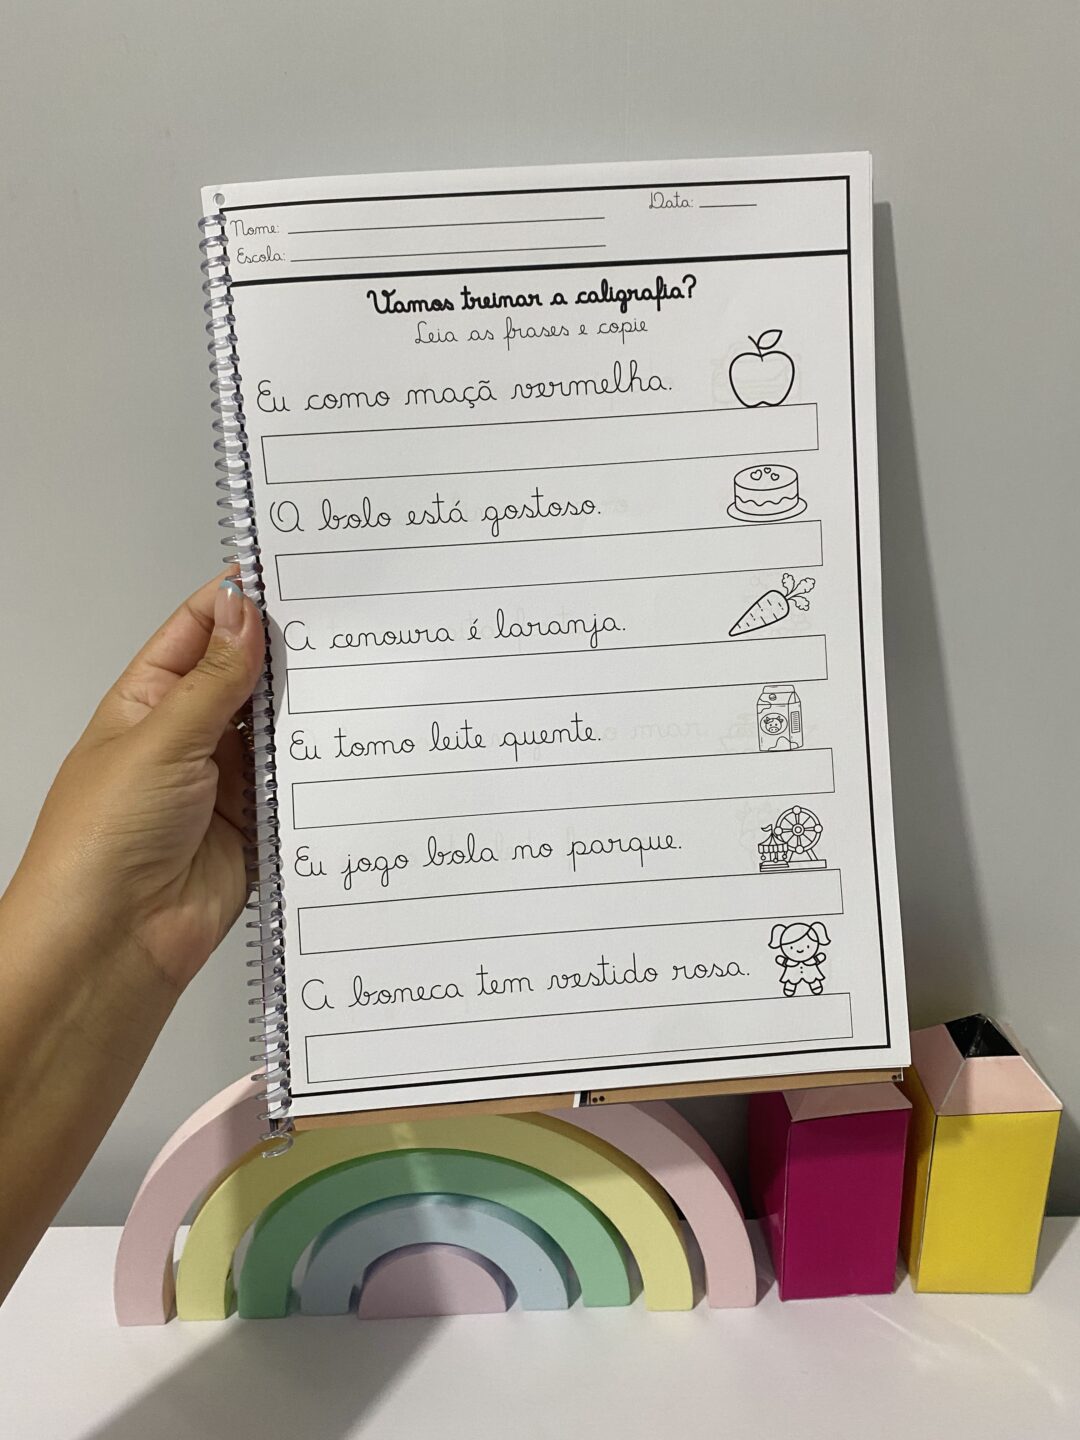 Nome:
Data:
Escola:
Vamos treinar a caligrafia?
Leia as frases e copie
Eu como maçã vermelha.
O bolo está gostoso.
A cenoura é laranja.
Eu tomo leite quente.
Eu jogo bola no parque.
A boneca tem vestido rosa.